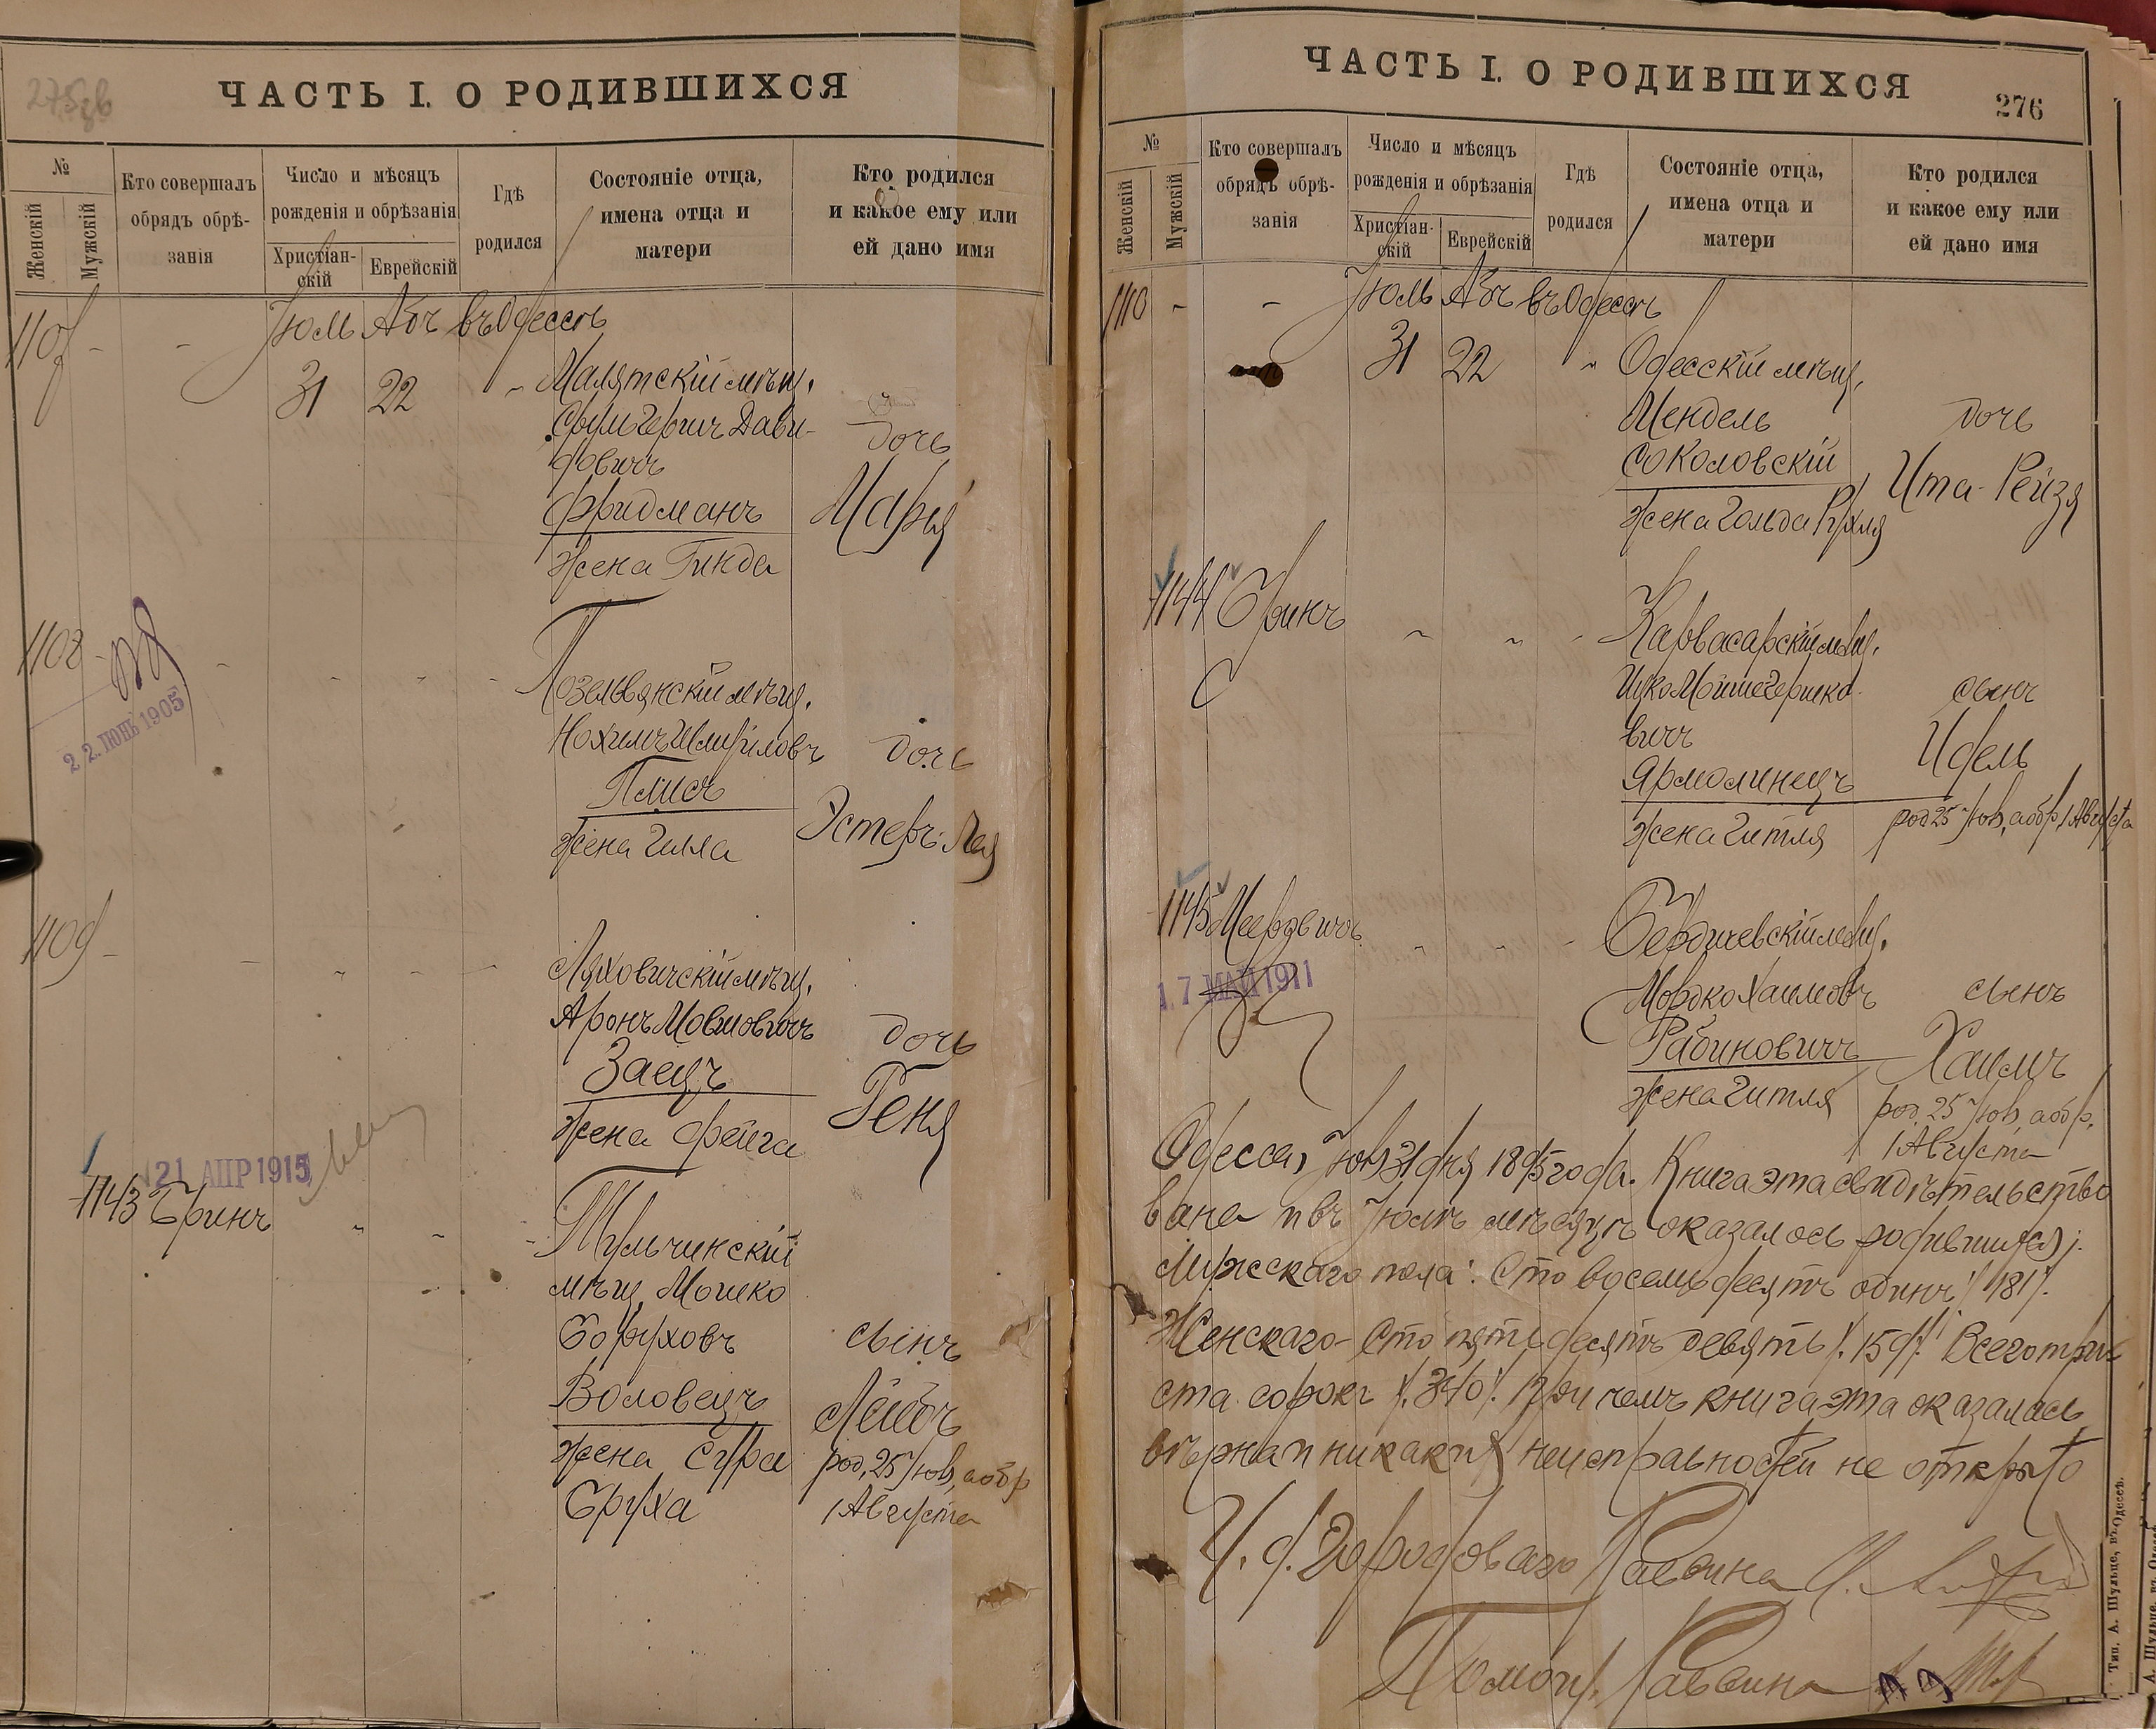 275об
ЧАСТЬ I. О РОДИВШИХСЯ
№
Женскій
Мужскій
Кто совершалъ
обрядъ обрѣ-
занія
Число и мѣсяцъ
рожденія и обрѣзанія
Христіан-
скій
Еврейскій
Гдѣ
родился
Состояніе отца,
имена отца и
матери
Кто родился
и какое ему или
ей дано имя
1107 - - Іюль Абъ въ Одессѣ
31 22 Малятскій мѣщ.
Сруль Гершъ Дави-
довичъ дочь
Фридманъ Марья
жена Гинда
1108
22. ІЮНЬ 1905
Позельвянскій мѣщ.
Нохимъ Шмуиловъ дочь
Плисъ
жена Гилла Эстеръ-Лея
1109
Ляховичскій мѣщ.
Аронъ Мовшовичъ дочь
Заецъ
жена Фейга Геня
21 АПР 1915
1143 Бринъ Тульчинскій
мѣщ. Мошко
Боруховъ сынъ
Воловецъ Лейбъ
жена Сура род. 25 Іюл, а обр
Бруха 1 Августа
ЧАСТЬ I. О РОДИВШИХСЯ
276
№
Женскій
Мужскій
Кто совершалъ
обрядъ обрѣ-
занія
Число и мѣсяцъ
рожденія и обрѣзанія
Христіан-
скій
Еврейскій
Гдѣ
родился
Состояніе отца,
имена отца и
матери
Кто родился
и какое ему или
ей дано имя
1110 - - Іюль Абъ въ Одессѣ
31 22 Одесскій мѣщ.
Мендель дочь
Соколовскій Ита-Рейзя
жена Гольда Рухля
1144 Бринъ Карвасарскій мѣщ.
Ицко Мойше Гершко- сынъ
вичъ Идель
Ярмолинецъ
жена Гитля род 25 Іюл, а обр. 1 Августа
1145 Мееровичъ Бердичевскій мѣщ.
17 МАЙ 1911
Мордко Хаимовъ сынъ
Рабиновичъ Хаимъ
жена Гитля род. 25 Іюл, а обр.
1 Августа
Одесса, Іюл 31 дня 1895 года. Книга эта свидѣтельство
вана и въ Іюлѣ мѣсяцѣ оказалось родившихся:
Мужскаго пола: Сто восемьдесятъ одинъ /181/.
Женскаго - Сто пятьдесятъ девять /.159/. Всего три-
ста сорокъ /.340/. При чемъ книга эта оказалась
вѣрна и никакихъ неисправностей не открыто
И. д. Городоваго Раввина
Помощ. Раввина
Тип. А. Шульце, въ Одессѣ.
А. Шульце, въ Одессѣ